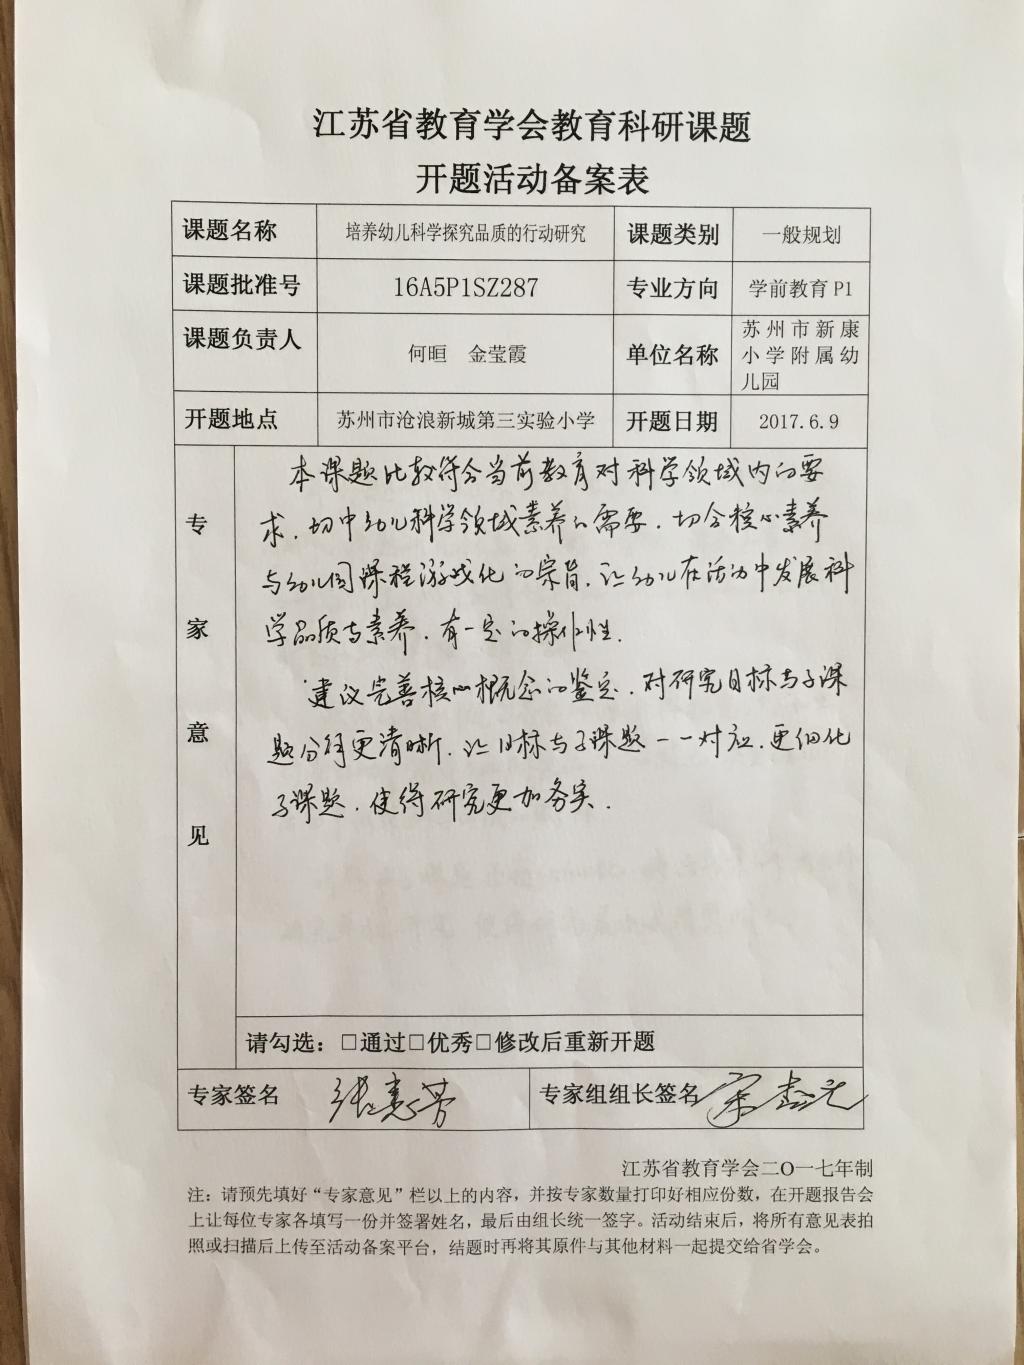 江苏省教育学会教育科研课题
开题活动备案表
课题名称 培养幼儿科学探究品质的行动研究 课题类别 一般规划
课题批准号 16A5P1SZ287 专业方向 学前教育 P1
课题负责人 何晅 金莹霞 单位名称 苏州市新康
小学附属幼
儿园
开题地点 苏州市沧浪新城第三实验小学 开题日期 2017.6.9
专家意见
本课题比较符合当前教育对科学领域内的要
求，切中幼儿科学领域素养的需要，切合核心素养
与幼儿园课程游戏化的宗旨，让幼儿在活动中发展科
学品质与素养，有一定的操作性。
建议完善核心概念的鉴定，对研究目标与子课
题分得更清晰，让目标与子课题一一对应，更细化
子课题，使得研究更加务实。
请勾选：□通过□优秀□修改后重新开题
专家签名 张惠芳 专家组组长签名
江苏省教育学会二〇一七年制
注：请预先填好“专家意见”栏以上的内容，并按专家数量打印好相应份数，在开题报告会
上让每位专家各填写一份并签署姓名，最后由组长统一签字。活动结束后，将所有意见表拍
照或扫描后上传至活动备案平台，结题时再将其原件与其他材料一起提交给省学会。